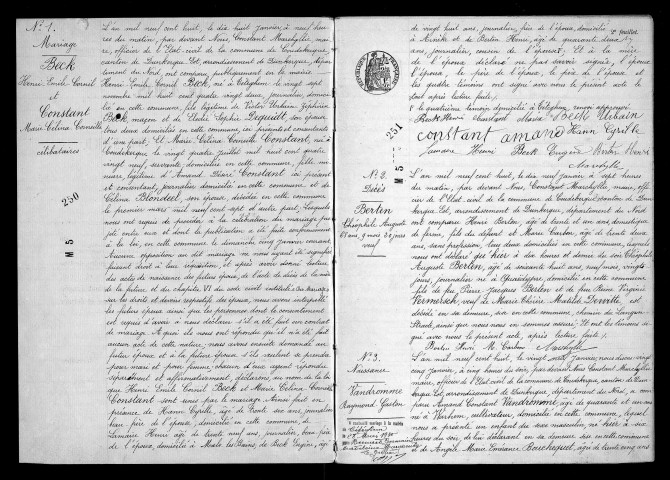 N° 1.
Mariage
Beck
Henri Emile Cornil
et
Constant
Marie Célina Cornélie
célibataires
250
M 5
L'an mil neuf cent huit, le dix huit janvier à neuf heures
du matin, par devant Nous, Constant Marchyllie, maire,
officier de l'Etat-civil de la commune de Coudekerque,
canton de Dunkerque Est, arrondissement de Dunkerque, département
du Nord, ont comparu publiquement en la mairie
Henri Emile Cornil Beck, né à Téteghem le vingt sept
novembre mil huit cent quatre vingt deux, journalier, domicilié
en cette commune, fils légitime de Victor Urbain Zéphirin
Beck, maçon et de Elodie Sophie Dequidt, son épouse,
tous deux domiciliés en cette commune, ici présents et consentants
d'une part; Et Marie Célina Cornélie Constant, née à
Coudekerque le vingt quatre juillet mil huit cent quatre
vingt neuf, servante, domiciliée en cette commune, fille mineure,
légitime d'Amand Désiré Constant ici présent
et consentant, journalier domicilié en cette commune et de
Célina Blondeel son épouse, décédée en cette commune le
premier mars mil neuf cent sept d'autre part; Lesquels
nous ont requis de procéder à la célébration du mariage projeté
entre eux et dont la publication a été faite conformément
à la loi, en cette commune le dimanche, cinq janvier courant.
Aucune opposition au dit mariage ne nous ayant été signifiée
faisant droit à leur réquisition, et après avoir donné lecture
des actes de naissance des futurs époux, de l'acte de décès de la mère
de la future et du chapitre VI du code civil intitulé : du mariage
sur les droits et devoirs respectifs des époux, nous avons interpellé
les futurs époux ainsi que les personnes dont le consentement
est requis d'avoir à nous déclarer s'il a été fait un contrat
de mariage. A quoi ils nous ont répondu qu'il n'a été fait
aucun acte de cette nature; nous avons ensuite demandé au
futur époux et à la future épouse s'ils veulent se prendre
pour mari et pour femme; chacun d'eux ayant répondu
séparément et affirmativement, déclarons, au nom de la loi
que Henri Emile Cornil Beck et Marie Célina Cornélie
Constant sont unis par le mariage. Ainsi fait en
présence de Hann Cyrille, âgé de trente six ans, journalier
beau père de l'époux, domicilié en cette commune, de
Lamaire Henri âgé de trente neuf ans, journalier, beau père
de l'époux, domicilié à Malo les Bains, de Beck Eugène, âgé
2e feuillet
de vingt huit ans, journalier, frère de l'époux, domicilié
à et de Bertin Henri, âgé de quarante deux
ans, journalier, cousin de l'épouse. Et à la mère
de l'époux déclaré ne pas savoir signer, l'époux
l'épouse, le père de l'époux, le père de l'épouse et
les quatre témoins ont signé avec nous le présent acte le
tout après lecture faite;
quatrième témoin domicilié à Téteghem, renvoi approuvé
Beck Henri Constant Maria Beck Urbain
constant amand Hann Cyrille
Lamaire Henri Beck Eugène Bertin Henri
Marchyllie
251
M 5
N° 2.
Décès
Bertin
Théophile Auguste
67 ans, 9 mois, 20 jours
veuf
L'an mil neuf cent huit, le dix neuf janvier à sept heures
du matin, par devant Nous, Constant Marchyllie, maire, officier
de l'Etat civil de la commune de Coudekerque, canton de Dunkerque
Est, arrondissement de Dunkerque, département du Nord
ont comparu Henri Bertin, âgé de quarante deux ans, domestique
de ferme, fils du défunt et Marie Carbon, âgé de trente deux
ans, sans profession, tous deux domiciliés en cette commune, lesquels
nous ont déclaré que hier à dix heures du soir, Théophile
Auguste Bertin, âgé de soixante huit ans, neuf mois, vingt
jours, journalier, né à Ghyvelde, domicilié en cette commune
fils de feu Pierre Jacques Bertin et de feu Reine Virginie
Vermersch, veuf de Marie Thérèse Mathilde Derville est
décédé en sa demeure, sise en cette commune, chemin de Langen-
Straete, ainsi que nous nous en sommes assuré; Et ont les témoins signé
avec nous le présent acte, après lecture faite.
Bertin Henri M. Carbon Marchyllie
N° 3.
Naissance
Vandromme
Raymond Gaston
L'an mil neuf cent huit, le vingt neuf janvier, nous devant
cinq janvier, à cinq heures du soir, par devant Nous, Constant Marchyllie
maire, officier de l'Etat-civil de la commune de Coudekerque, canton de Dunkerque
Est, arrondissement de Dunkerque, département du Nord, a comparu
Amand Constant Vandromme, âgé de quarante et un ans
né à Warhem, cultivateur, domicilié en cette commune, lequel
nous a présenté un enfant du sexe masculin, né hier à six
heures du soir, de lui déclarant en sa demeure sise en cette commune
et de Angèle Marie Emerance Barchequiel, âgé de vingt